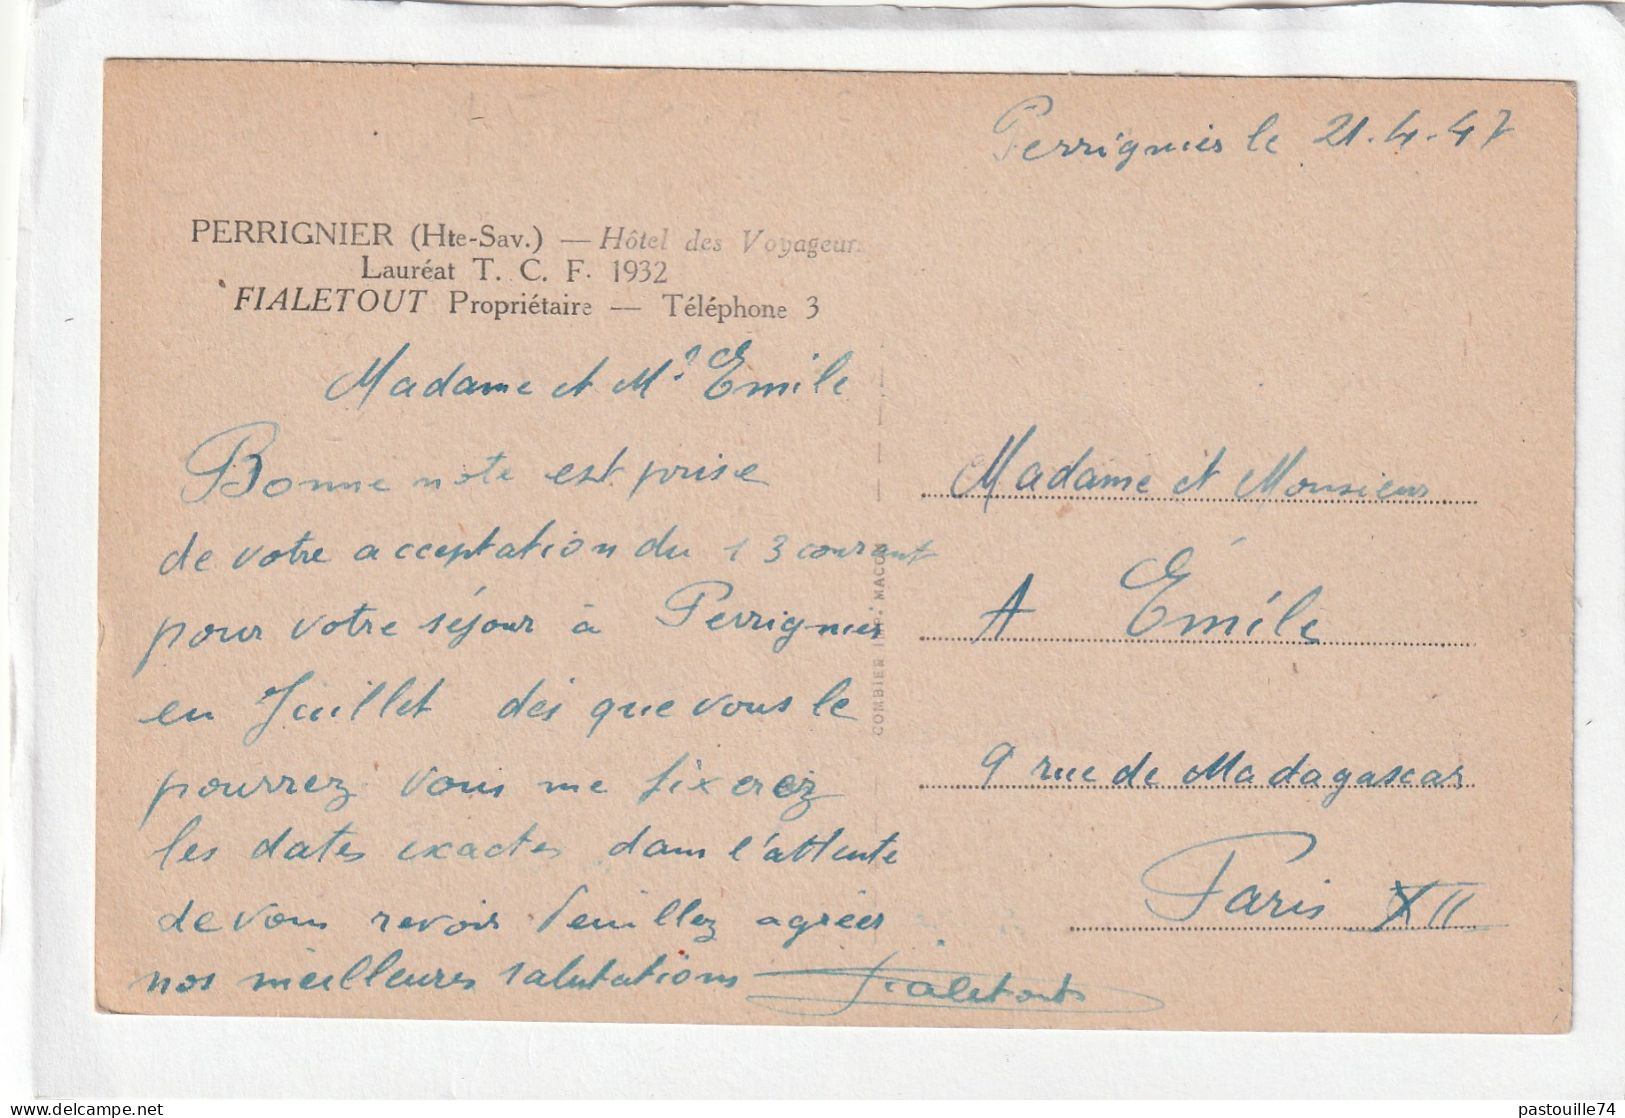 Perrignier le 21.4.47
PERRIGNIER (Hte-Sav.) — Hôtel des Voyageurs
Lauréat T. C. F. 1932
FIALETOUT Propriétaire — Téléphone 3
Madame et Mr Emile
Bonne note est prise
de votre acceptation du 13 courant
pour votre séjour à Perrignier
en Juillet dès que vous le
pourrez vous me fixerez
les dates exactes dans l'attente
de vous revoir Veuillez agréer
nos meilleures salutations Fialetout
COMBIER IMP. MACON
Madame et Monsieur
A Émile
9 rue de Madagascar
Paris XII
delcampe.net
pastouille74